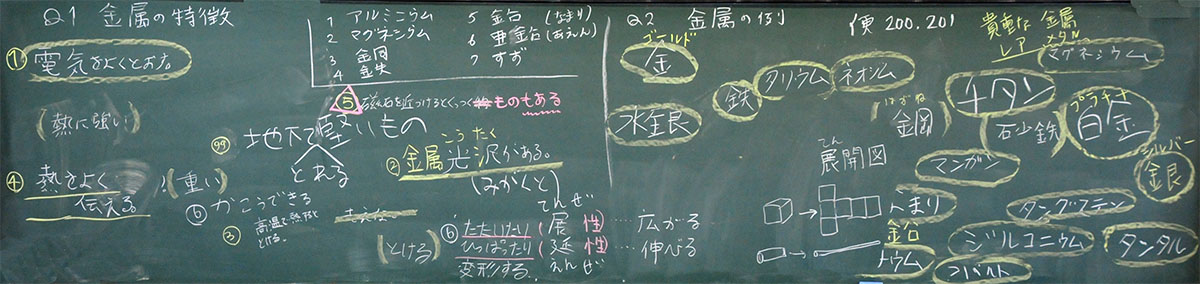 Q1 金属の特徴
① 電気をよくとおす。
(熱に強い)
④ 熱をよく
伝える。
(重い)
1 アルミニウム
2 マグネシウム
3 金同
4 金失
5 金台 (なまり)
6 亜金台 (あえん)
7 すず
⑤ 磁石を近づけるとくっつくものもある
99 地下で堅いもの
とれる
こうたく
② 金属光沢がある。
(みがくと)
⑥ かこうできる
高温で熱すると
とける。
③
(とける)
てんせい
⑥ たたいたり (展性 …… 広がる
ひっぱったり (延性 …… 伸べる
変形する。 えんせい
Q2 金属の例
便 200.201
貴重な 金属
レア メタル
ゴールド
金
水金艮
鉄
タリウム
ネオジム
マグネシウム
はがね
金岡
チタン
石少鉄
プラチナ
白金
シルバー
銀
てん
展開図
マンガン
なまり
金台
トウム
タングステン
ジルコニウム
タンタル
コバルト